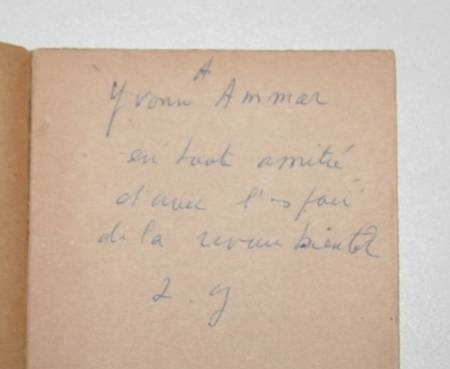 A
Yvonne Ammar
en toute amitié
et avec l'espoir
de la revoir bientôt